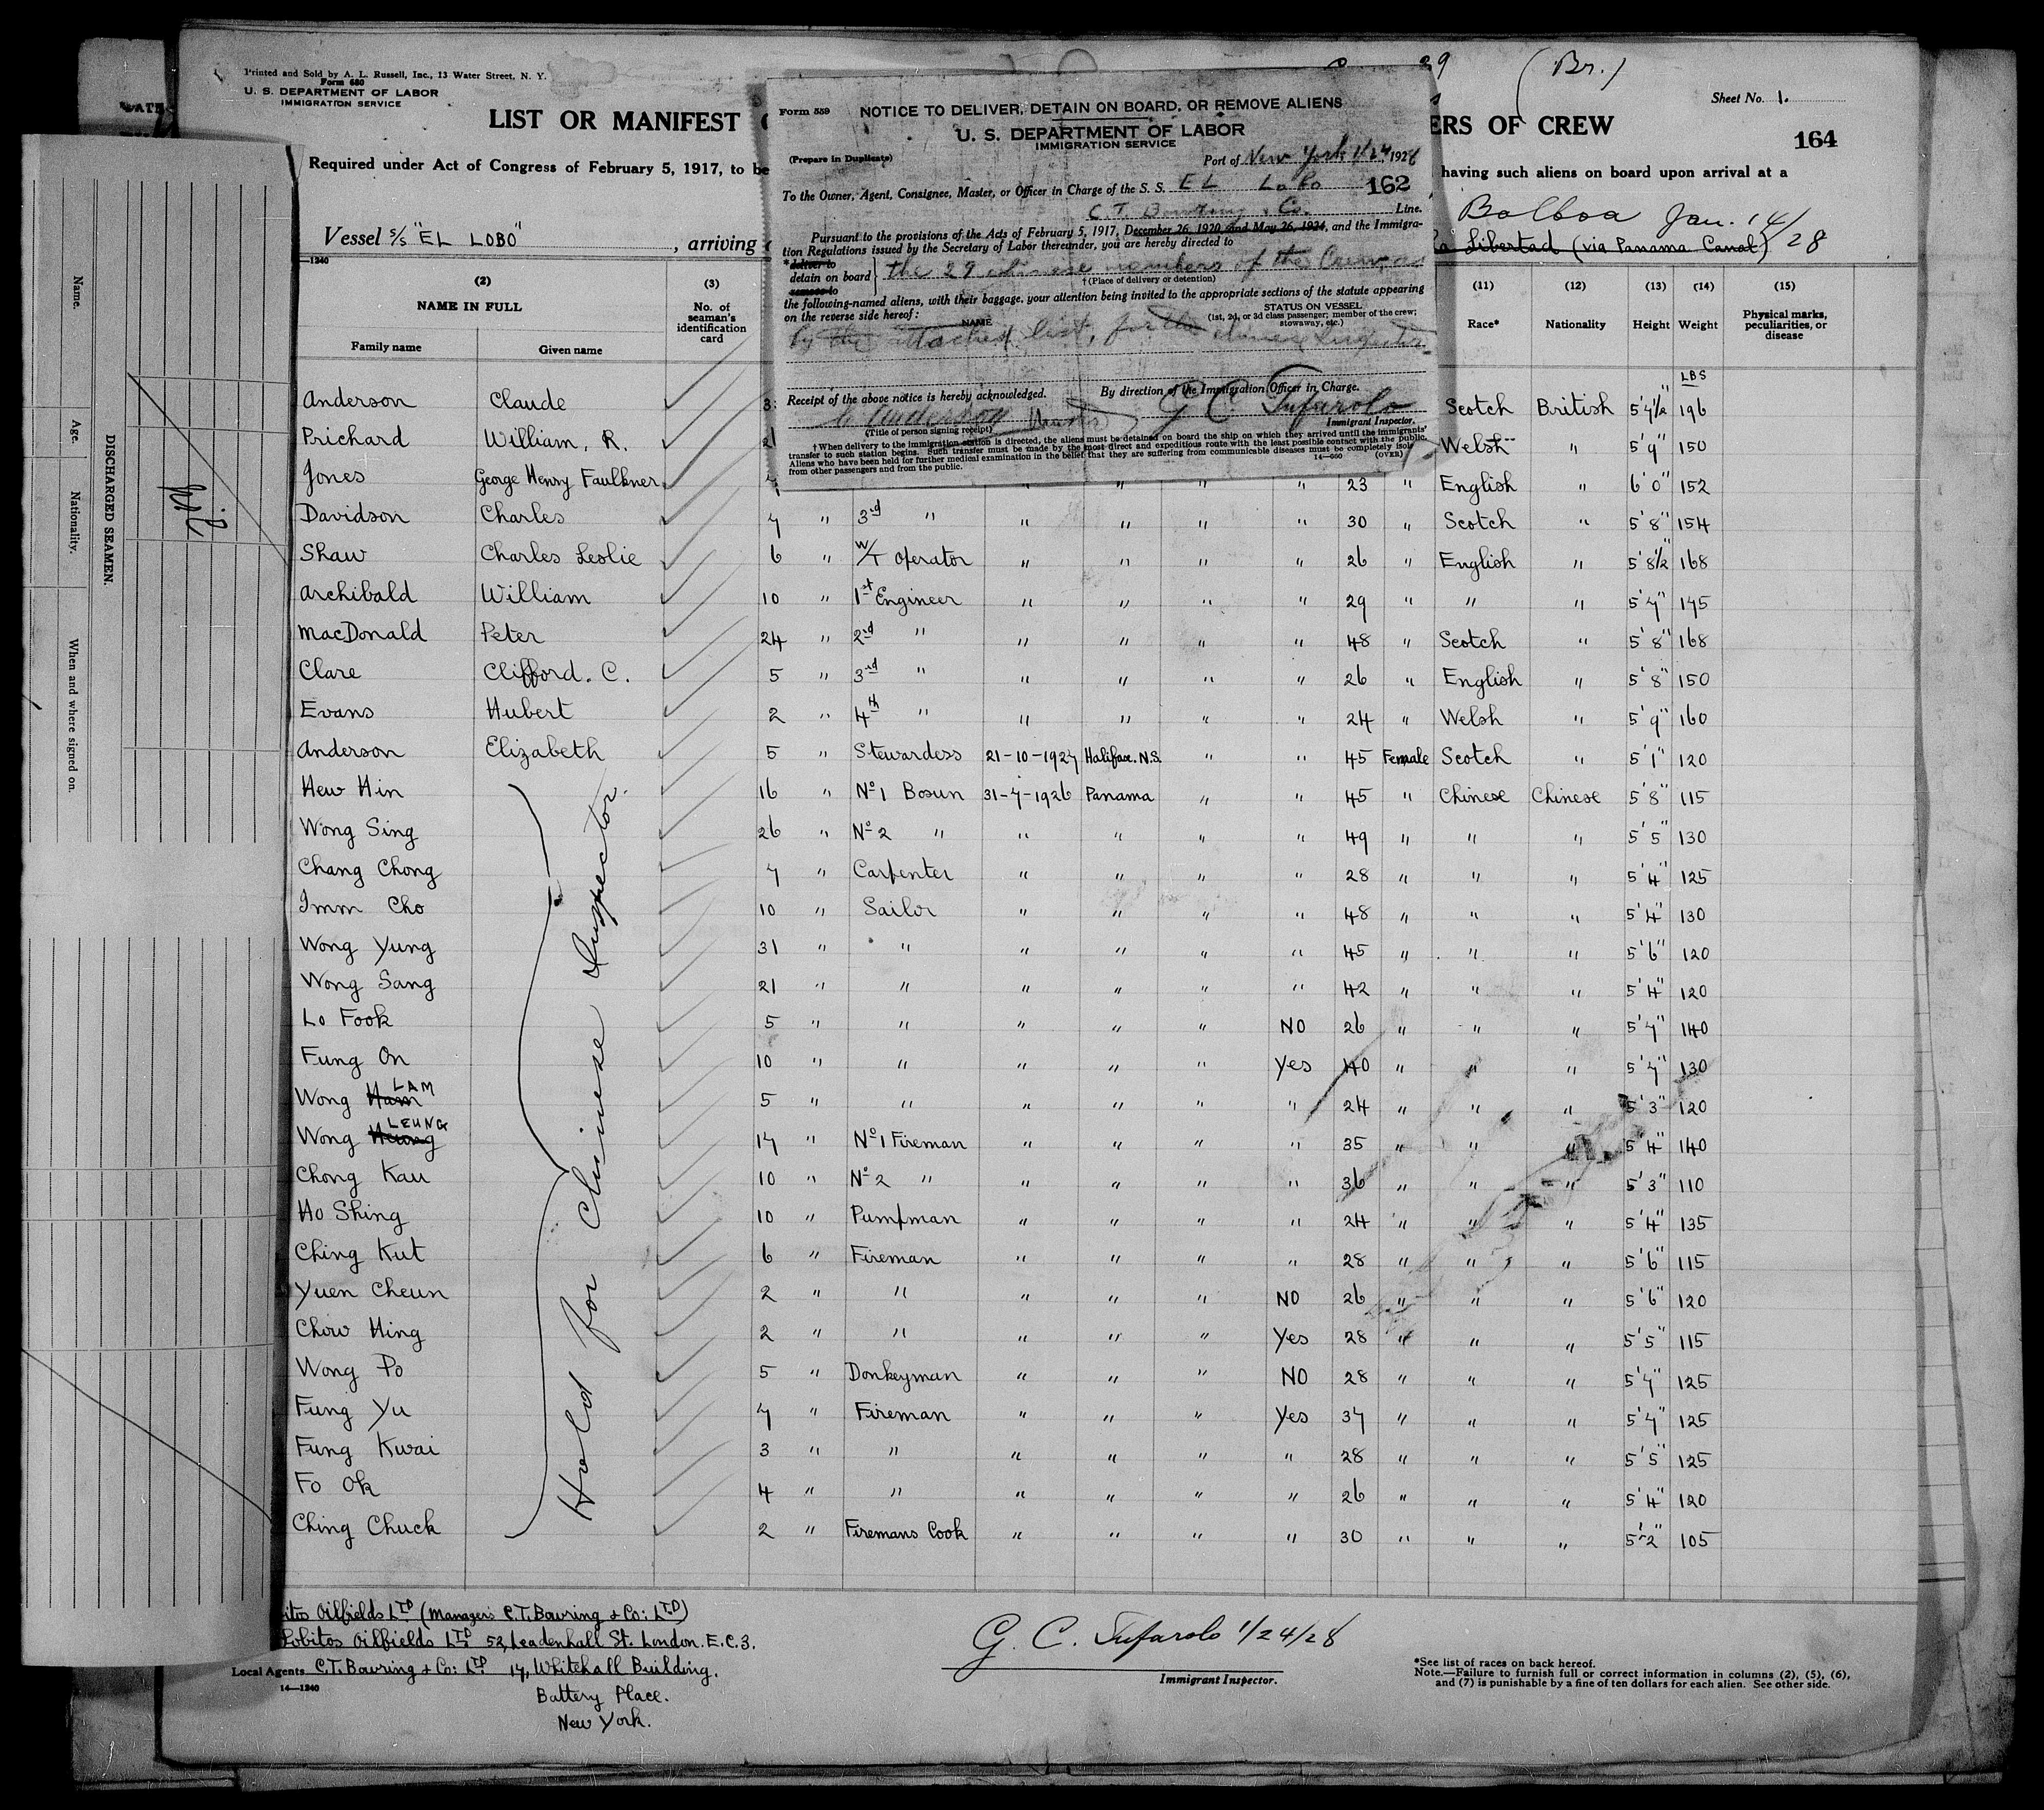 Printed and Sold by A. L. Russell, Inc., 13 Water Street, N. Y.
Form 680
U. S. DEPARTMENT OF LABOR
IMMIGRATION SERVICE
(Br.)
Sheet No. 1.
LIST OR MANIFEST
ERS OF CREW
164
Required under Act of Congress of February 5, 1917, to be
having such aliens on board upon arrival at a
Vessel S/S "EL LOBO", arriving
Balboa Jan. 14/28
Libertad (via Panama Canal)
Form 559
NOTICE TO DELIVER, DETAIN ON BOARD, OR REMOVE ALIENS
U. S. DEPARTMENT OF LABOR
IMMIGRATION SERVICE
(Prepare in Duplicate)
Port of New York 1/24 1928
To the Owner, Agent, Consignee, Master, or Officer in Charge of the S. S. EL LOBO 162
C. T. Bowring & Co. Line.
Pursuant to the provisions of the Acts of February 5, 1917, December 26, 1920, and May 26, 1924, and the Immigra-
tion Regulations issued by the Secretary of Labor thereunder, you are hereby directed to
*deliver to
detain on board } the 29 chinese members of the Crew, as
remove to
†(Place of delivery or detention)
the following-named aliens, with their baggage, your attention being invited to the appropriate sections of the statute appearing
on the reverse side hereof:
NAME
STATUS ON VESSEL
(1st, 2d, or 3d class passenger; member of the crew; stowaway, etc.)
by the attached list, for the chinese Inspector
Receipt of the above notice is hereby acknowledged.
By direction of the Immigration Officer in Charge.
C Anderson
G C Tufarolo
(Title of person signing receipt)
Immigrant Inspector.
†When delivery to the immigration station is directed, the aliens must be detained on board the ship on which they arrived until the immigrants'
transfer to such station begins. Such transfer must be made by the most direct and expeditious route with the least possible contact with the public.
Aliens who have been held for further medical examination in the belief that they are suffering from communicable diseases must be completely isolated
from other passengers and from the public.
14—660
(OVER)
Name.
Age.
Nationality.
When and where signed on.
DISCHARGED SEAMEN.
Nil
—1240
(2) (3) (11) (12) (13) (14) (15)
NAME IN FULL
Family name Given name
No. of seaman's identification card
Race* Nationality Height Weight Physical marks, peculiarities, or disease
LBS
Anderson Claude Scotch British 5'7½" 196
Prichard William. R. Welsh " 5'9" 150
Jones George Henry Faulkner " " " " 23 " English " 6'0" 152
Davidson Charles 7 " 3rd " " " " " 30 " Scotch " 5'8" 154
Shaw Charles Leslie 6 " W/T Operator " " " " 26 " English " 5'8½" 168
Archibald William 10 " 1st Engineer " " " " 29 " " " 5'7" 175
MacDonald Peter 24 " 2nd " " " " " 48 " Scotch " 5'8" 168
Clare Clifford. C. 5 " 3rd " " " " " 26 " English " 5'8" 150
Evans Hubert 2 " 4th " " " " " 24 " Welsh " 5'9" 160
Anderson Elizabeth 5 " Stewardess 21-10-1927 Halifax. N.S. " " 45 Female Scotch " 5'1" 120
Hew Hin 16 " No1 Bosun 31-7-1926 Panama " " 45 " Chinese Chinese 5'8" 115
Wong Sing 26 " No2 " " " " " 49 " " " 5'5" 130
Chang Chong 7 " Carpenter " " " " 28 " " " 5'4" 125
Imm Cho 10 " Sailor " " " " 48 " " " 5'4" 130
Wong Yung 31 " " " " " " 45 " " " 5'6" 120
Wong Sang 21 " " " " " " 42 " " " 5'4" 120
Lo Fook 5 " " " " " NO 26 " " " 5'7" 140
Fung On 10 " " " " " Yes 40 " " " 5'7" 130
Wong Ham LAM 5 " " " " " " 24 " " " 5'3" 120
Wong Heung LEUNG 17 " No1 Fireman " " " " 35 " " " 5'4" 140
Chong Kau 10 " No2 " " " " " 36 " " " 5'3" 110
Ho Shing 10 " Pumpman " " " " 24 " " " 5'4" 135
Ching Kut 6 " Fireman " " " " 28 " " " 5'6" 115
Yuen Cheun 2 " " " " " NO 26 " " " 5'6" 120
Chow Hing 2 " " " " " Yes 28 " " " 5'5" 115
Wong Po 5 " Donkeyman " " " NO 28 " " " 5'7" 125
Fung Yu 7 " Fireman " " " Yes 37 " " " 5'7" 125
Fung Kwai 3 " " " " " " 28 " " " 5'5" 125
Fo Ok 4 " " " " " " 26 " " " 5'4" 120
Ching Chuck 2 " Firemans Cook " " " " 30 " " " 5'2" 105
Hold for Chinese Inspector.
itos Oilfields LTD (Managers C.T. Bowring & Co: LTD)
Lobitos Oilfields LTD 52, Leadenhall St. London. E.C.3.
Local Agents C.T. Bowring & Co: LTD 17, Whitehall Building.
14—1240
Battery Place.
New York.
G. C. Tufarolo 1/24/28
Immigrant Inspector.
*See list of races on back hereof.
Note.—Failure to furnish full or correct information in columns (2), (5), (6),
and (7) is punishable by a fine of ten dollars for each alien. See other side.